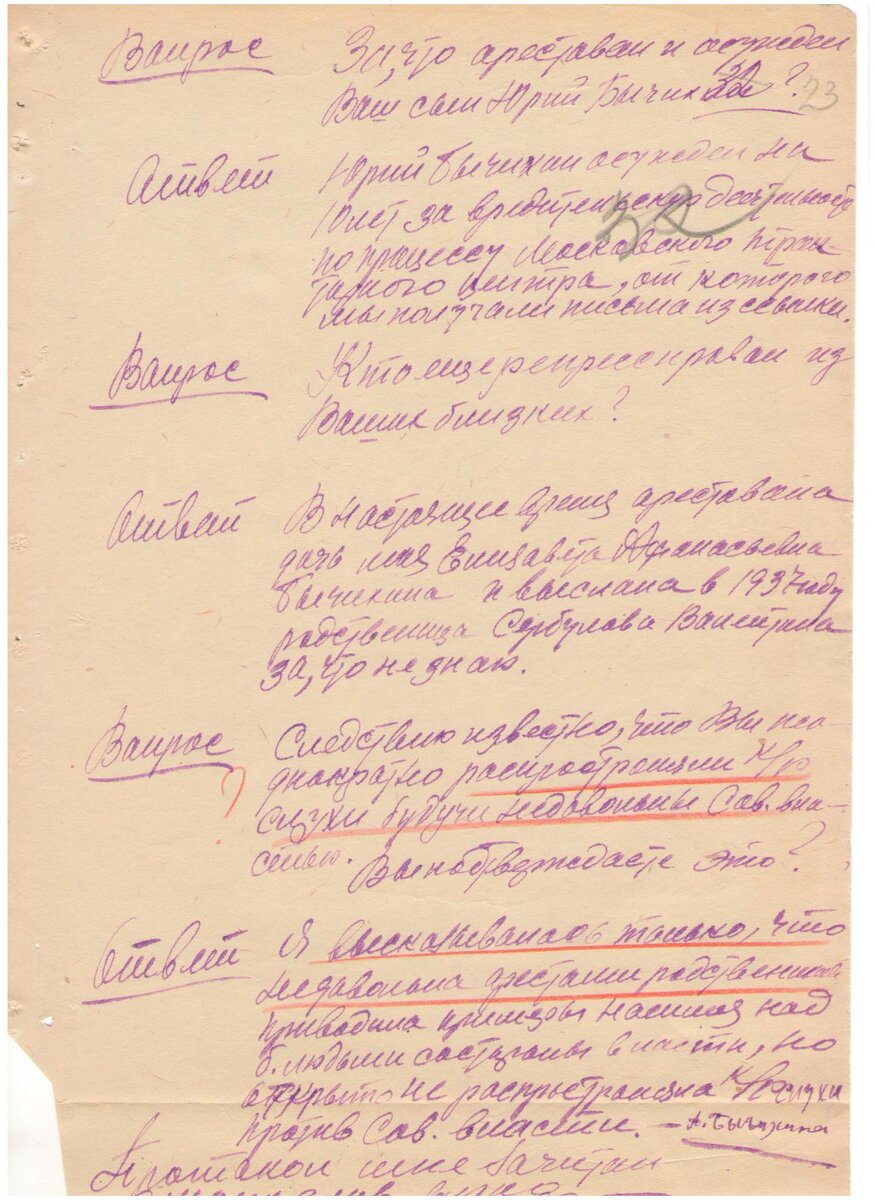 Вопрос За, что арестован и осужден
Ваш сын Юрий Бычихин? 23
32
Ответ Юрий Бычихин осужден на
10 лет за вредительскую деятельность
по процессу Московского
центра, от которого
мы получали письма из ссылки.
Вопрос Кто еще репрессирован из
Ваших близких?
Ответ В настоящее время арестована
дочь моя Елизавета Афанасьевна
Бычихина и выслана в 1937 году
родственица Сербулова Валентина
за, что не знаю.
Вопрос Следствию известно, что Вы не-
днократно распространяли к/р
слухи будучи недовольны Сов. вла-
стью. Вы подтверждаете это?
Ответ Я высказывалась только, что
недовольна арестами родственников
приводила примеры насилия над
б. людьми со стороны власти, но
открыто не распространяла к/р слухи
против Сов. власти. – А. Бычихина
Протокол мне зачитан